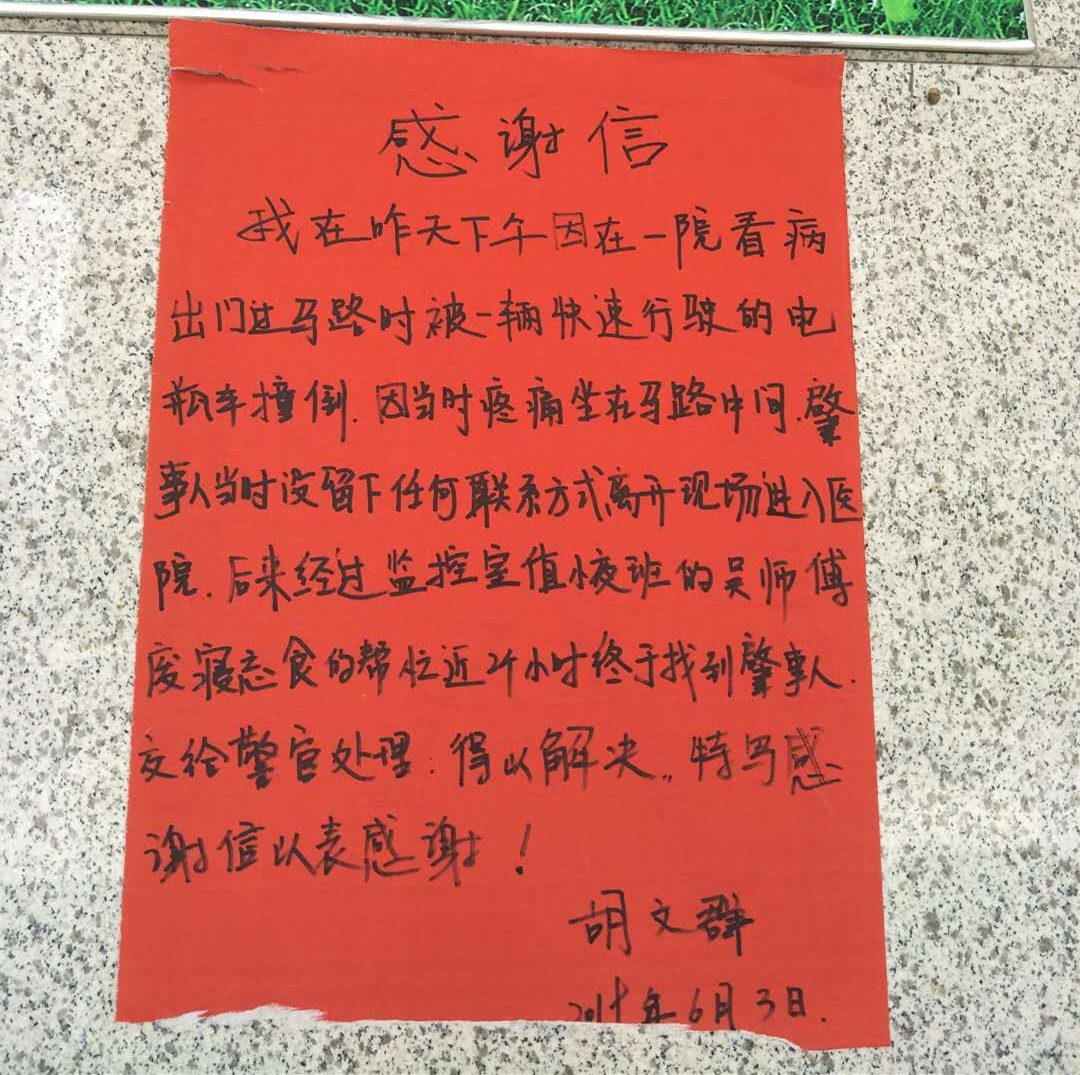 感谢信
我在昨天下午因在一院看病
出门过马路时被一辆快速行驶的电
瓶车撞倒.因当时疼痛坐在马路中间.肇
事人当时没留下任何联系方式离开现场进入医
院.后来经过监控室值夜班的吴师傅
废寝忘食的帮忙近24小时终于找到肇事人.
交给警官处理.得以解决。特写感
谢信以表感谢!
胡文群
年6月3日.